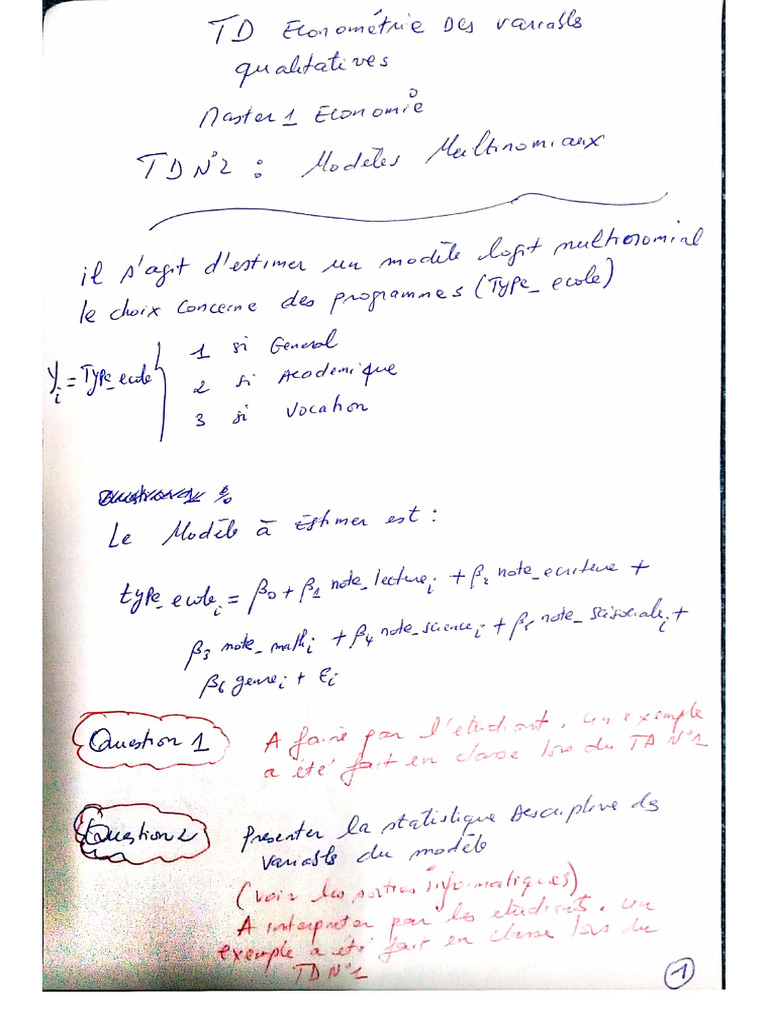 TD Econométrie Des variables
qualitatives
Master 1 Economie
TD N°2 : Modèles Multinomiaux
il s'agit d'estimer un modèle logit multinomial
le choix concerne des programmes (Type_ecole)
yi = Type_ecole { 1 si General
2 si Academique
3 si Vocation
Question 1 :
Le Modèle à Estimer est :
type_ecole i = β0 + β1 note_lecture i + β2 note_ecriture +
β3 note_math i + β4 note_science i + β5 note_scisociale i +
β6 genre i + εi
Question 1 A faire par l'etudiant, un exemple
a été fait en classe lors du TD N°1
Question 2 Presenter la statistique Descriptive des
variable du modèle
(voir les sorties informatiques)
A interpreter par les etudiants, un
exemple a été fait en classe lors du
TD N°1
1